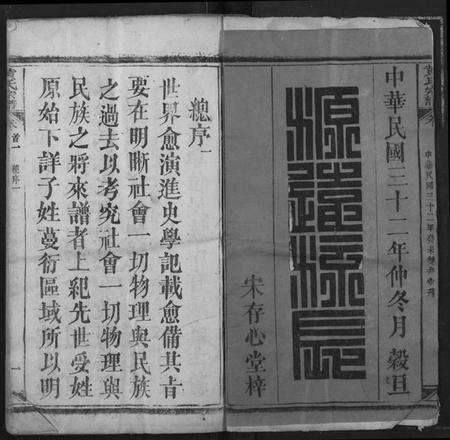 中華民國三十二年仲冬月穀旦
源遠流長
宋存心堂梓
總序
世界愈演進史學記載愈備其旨
要在明晰社會一切物理與民族
之過去以考究社會一切物理與
民族之將來譜者上紀先世受姓
原始下詳子姓蔓衍區域所以明
卷首一
總序
一